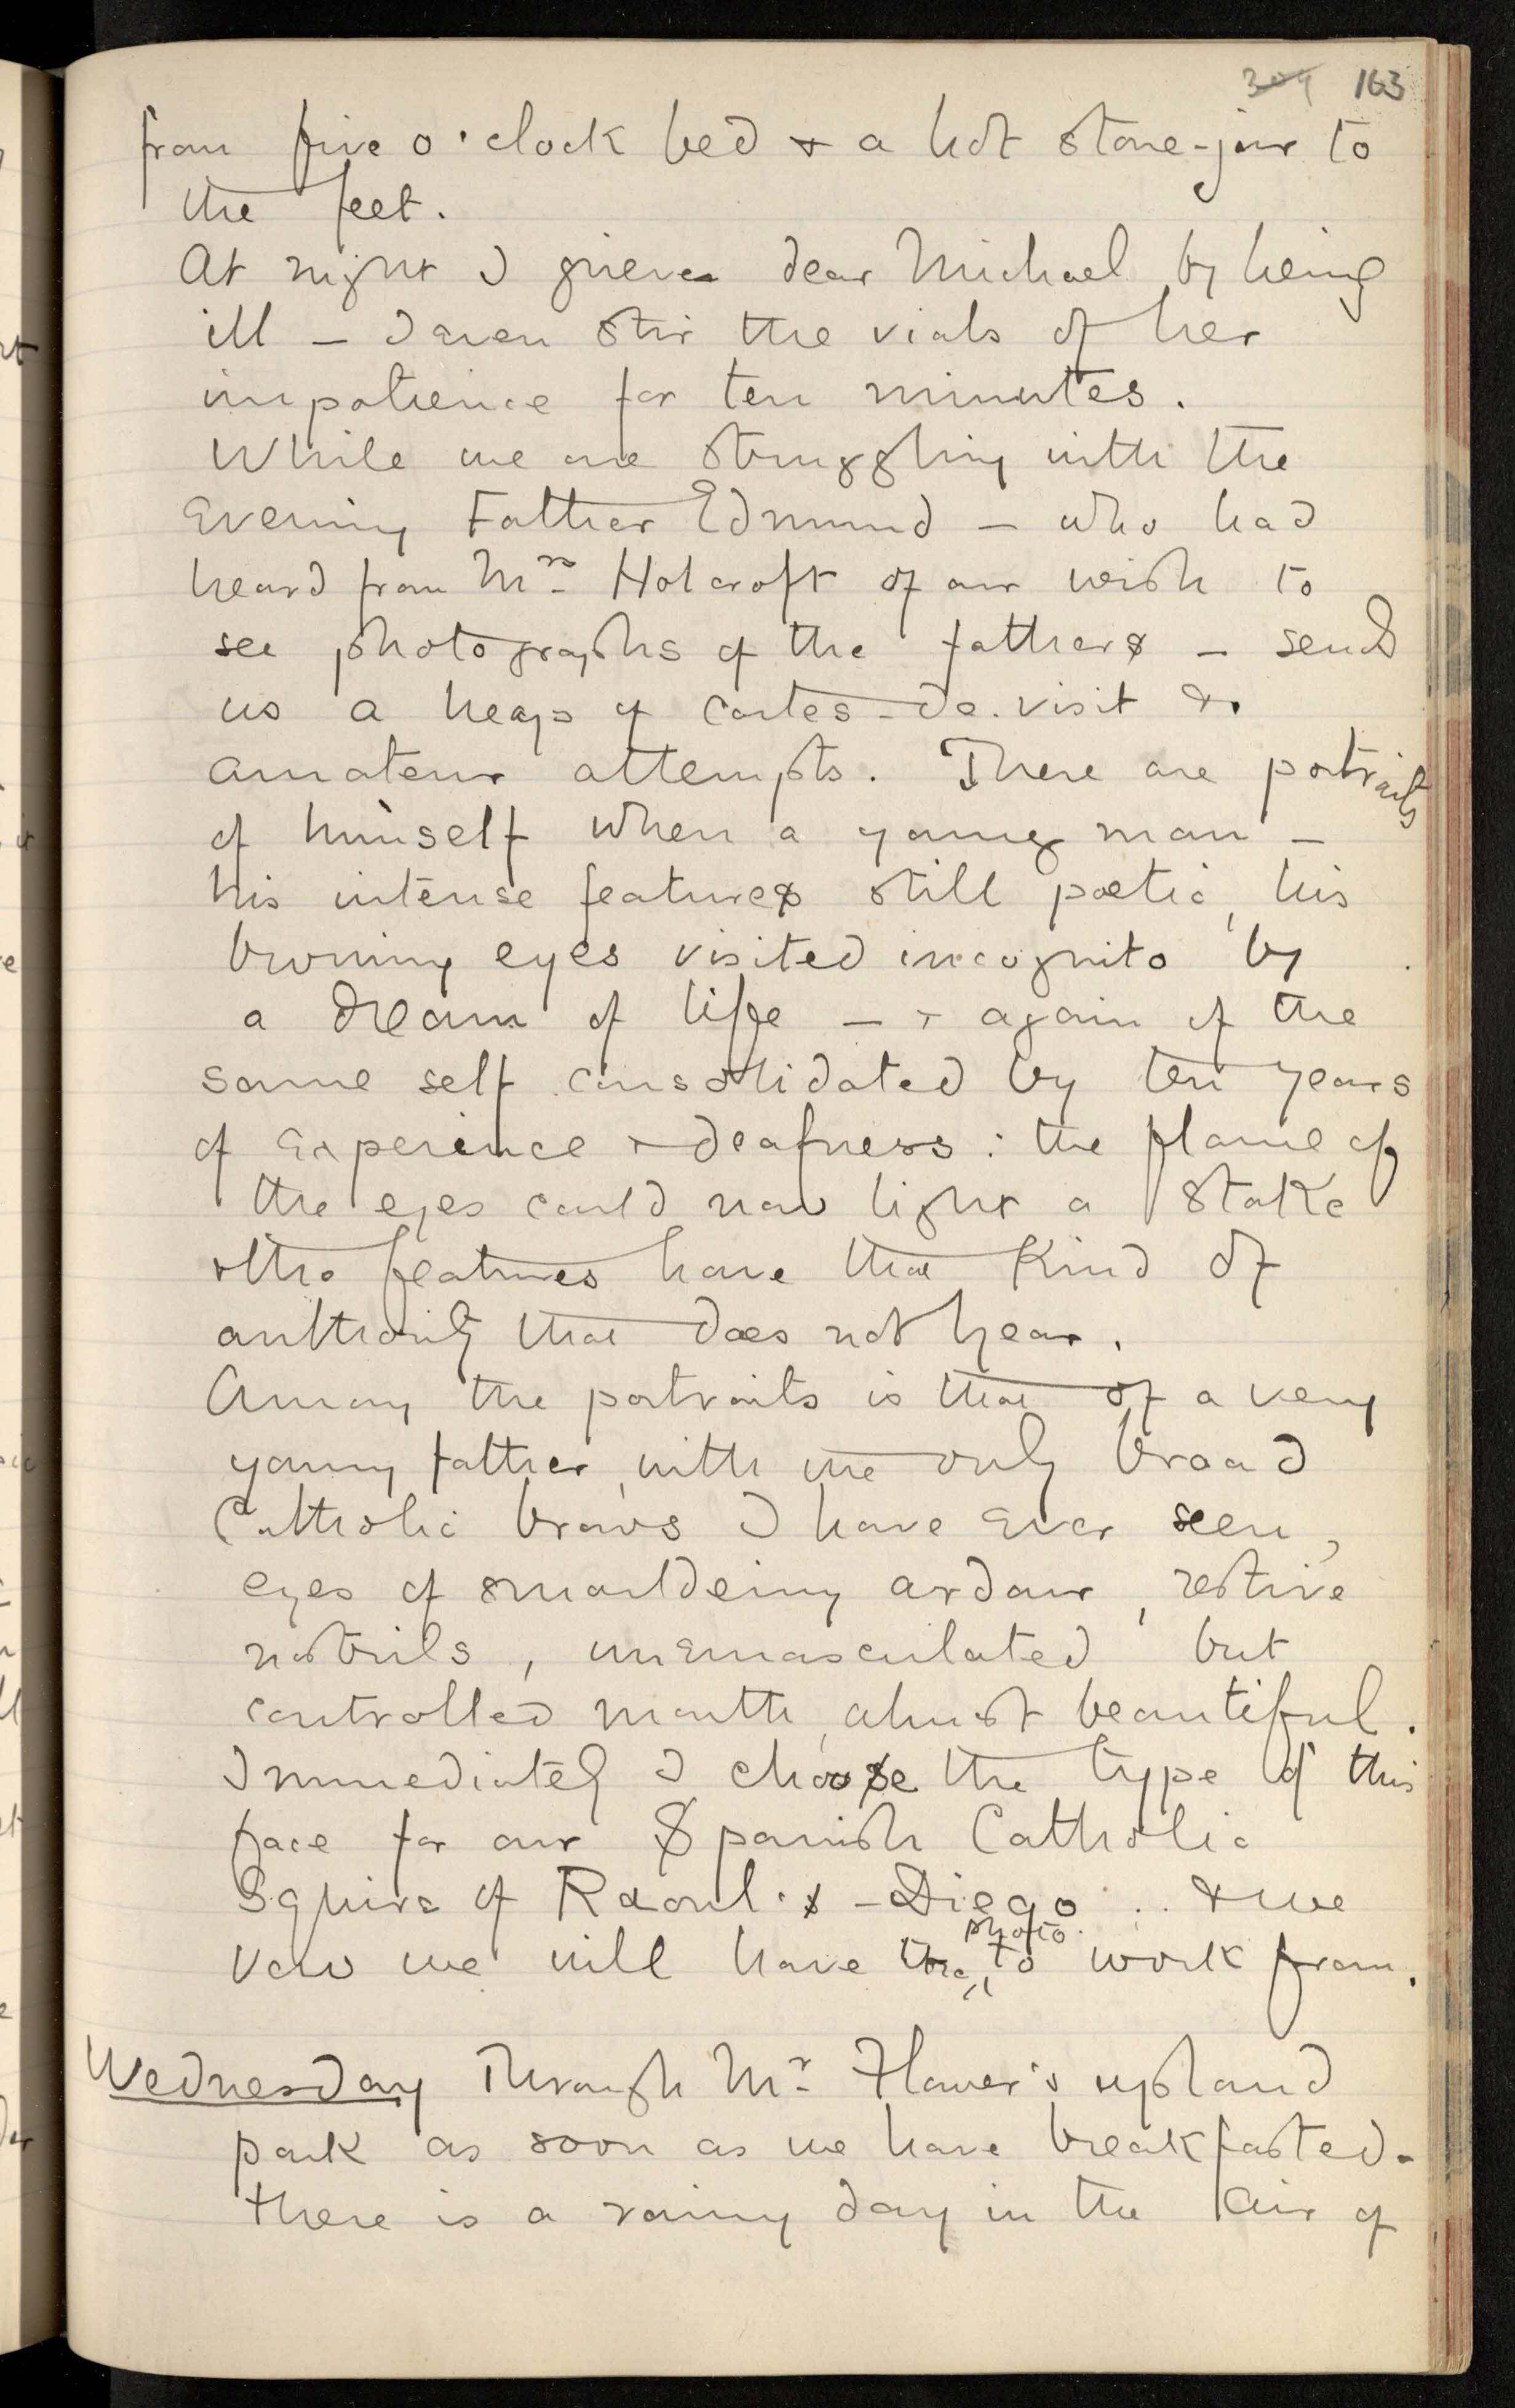 309 163
from five o'clock bed & a hot stone-jar to
the feet.
At night I grieve dear Michael by being
ill – I even stir the vials of her
impatience for ten minutes.
While we are struggling with the
Evening Father Edmund – who had
heard from Mrs Holcroft of our wish to
see photographs of the fathers – sends
us a heap of cartes-de-visit &
amateur attempts. There are portraits
of himself when a young man –
his intense features still poetic, his
browning eyes visited incognito by
a dream of life – & again of the
same self consolidated by ten years
of experience & deafness: the flame of
the eyes could now light a stake
& the features have that kind of
authority that does not hear.
Among the portraits is that of a very
young father, with the only broad
Catholic brows I have ever seen,
eyes of smouldering ardour, restive
nostrils, unemasculated but
controlled mouth, almost beautiful.
Immediately I choose the type of this
face for our Spanish Catholic
Squire of Raoul's – Diego .. & we
vow we will have the photo to work from.
Wednesday Through Mr Flower's upland
park as soon as we have breakfasted –
there is a rainy day in the air of